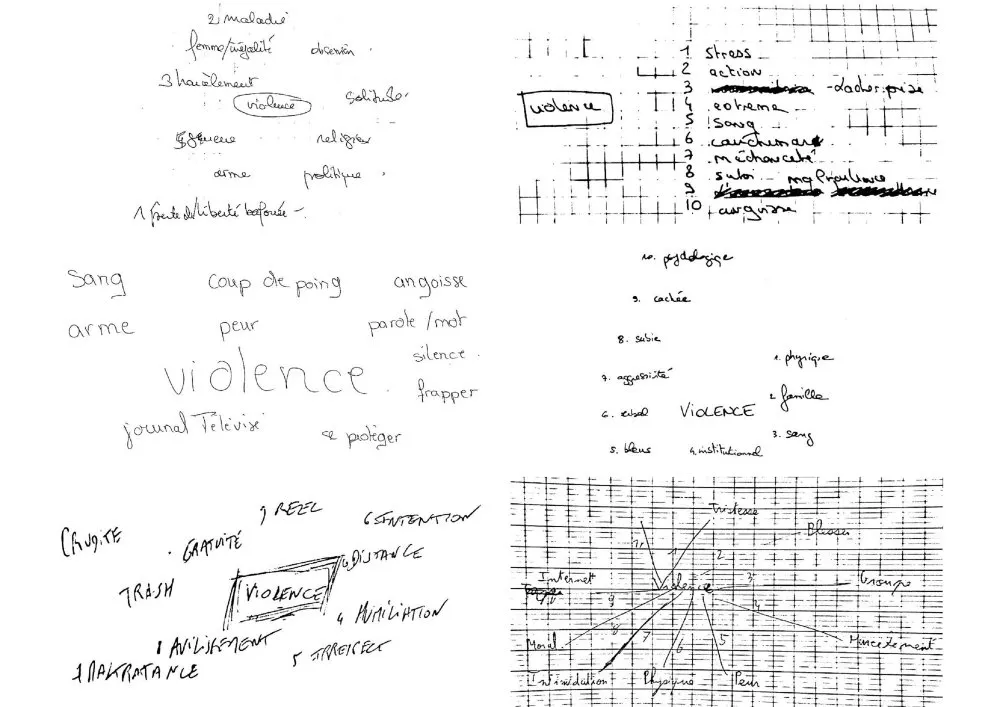 2) maladie
femme/inégalité
3 harcèlement
violence
solitude
5) guerre
religion
arme
politique
1 liberté bafouée
violence
1 stress
2 action
3 - Lacher prise
4 extreme
5 sang
6 cauchemar
7 méchanceté
8 subir
9
10 angoisse
sang coup de poing angoisse
arme peur parole/mot
silence
violence
frapper
journal Télévisé
se protéger
10.
9. cachée
8. subie
1. physique
7. agressivité
2. famille
6. verbal
VIOLENCE
3. sang
5. bleus
4. institutionnel
9 REEL
6 INTENTION
CRUDITE
GRATUITÉ
DISTANCE
TRASH
VIOLENCE
4 HUMILIATION
1 AVILISSEMENT
5 IRRESPECT
Tristesse
Blesser
Internet
Violence
Groupe
Moral
Harcèlement
Intimidation
Physique
Peur
1 2 3 4 5 6 7 8 9